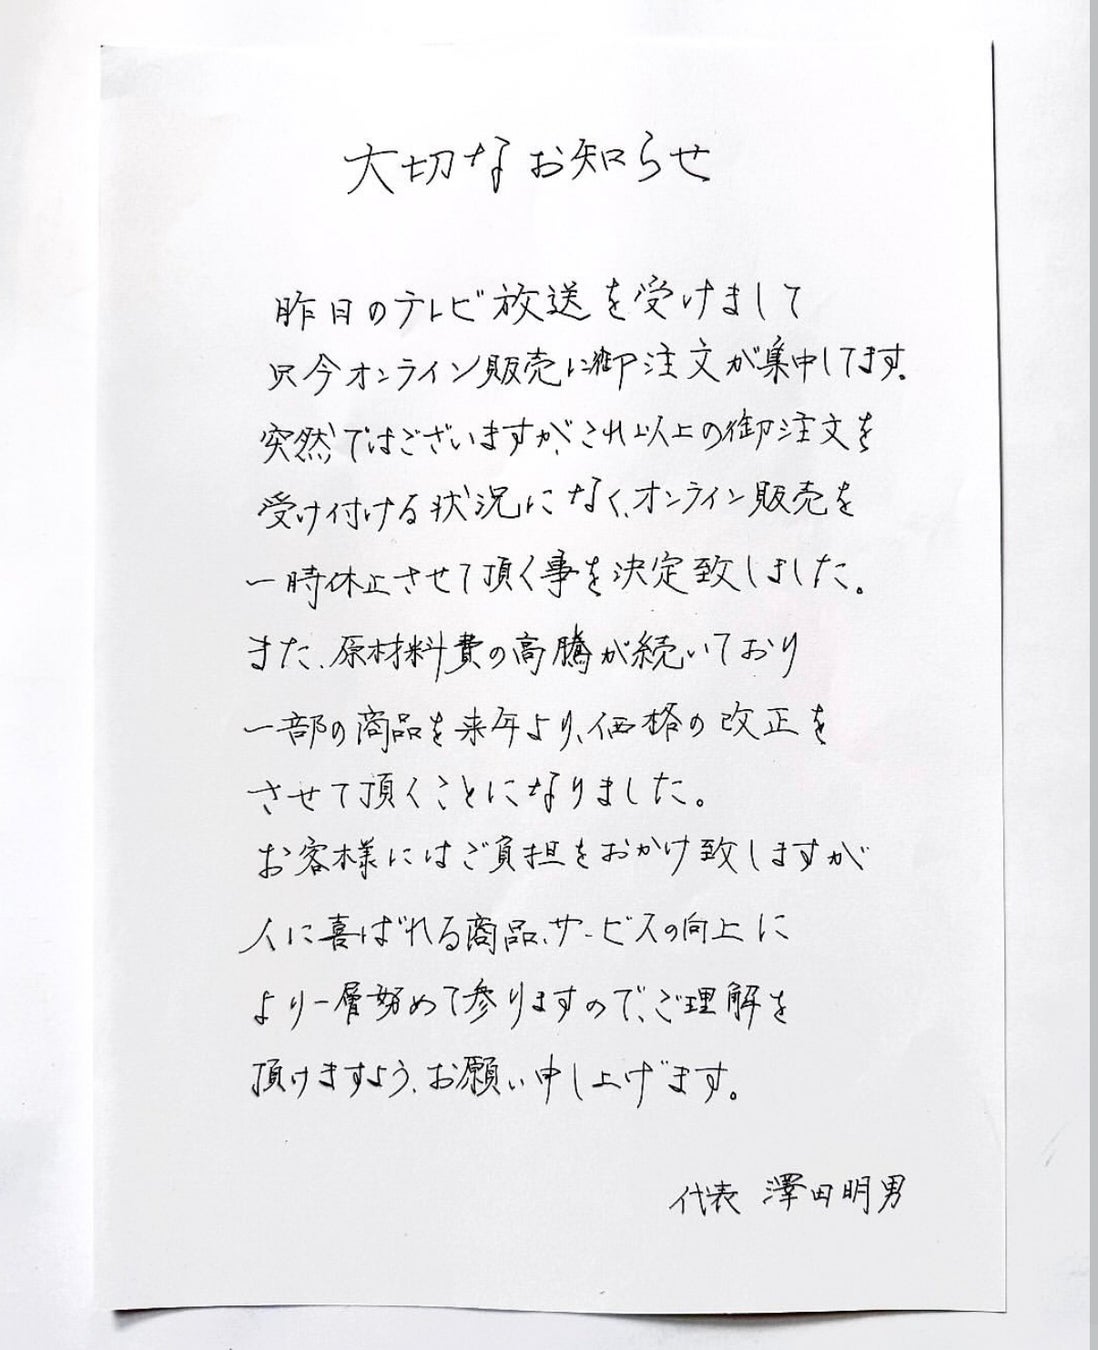 大切なお知らせ
昨日のテレビ放送を受けまして
只今オンライン販売に御注文が集中してます。
突然ではございますが、これ以上の御注文を
受け付ける状況になく、オンライン販売を
一時休止させて頂く事を決定致しました。
また、原材料費の高騰が続いており
一部の商品を来年より、価格の改正を
させて頂くことになりました。
お客様にはご負担をおかけ致しますが
人に喜ばれる商品、サービスの向上に
より一層努めて参りますので、ご理解を
頂けますよう、お願い申し上げます。
代表 澤田明男